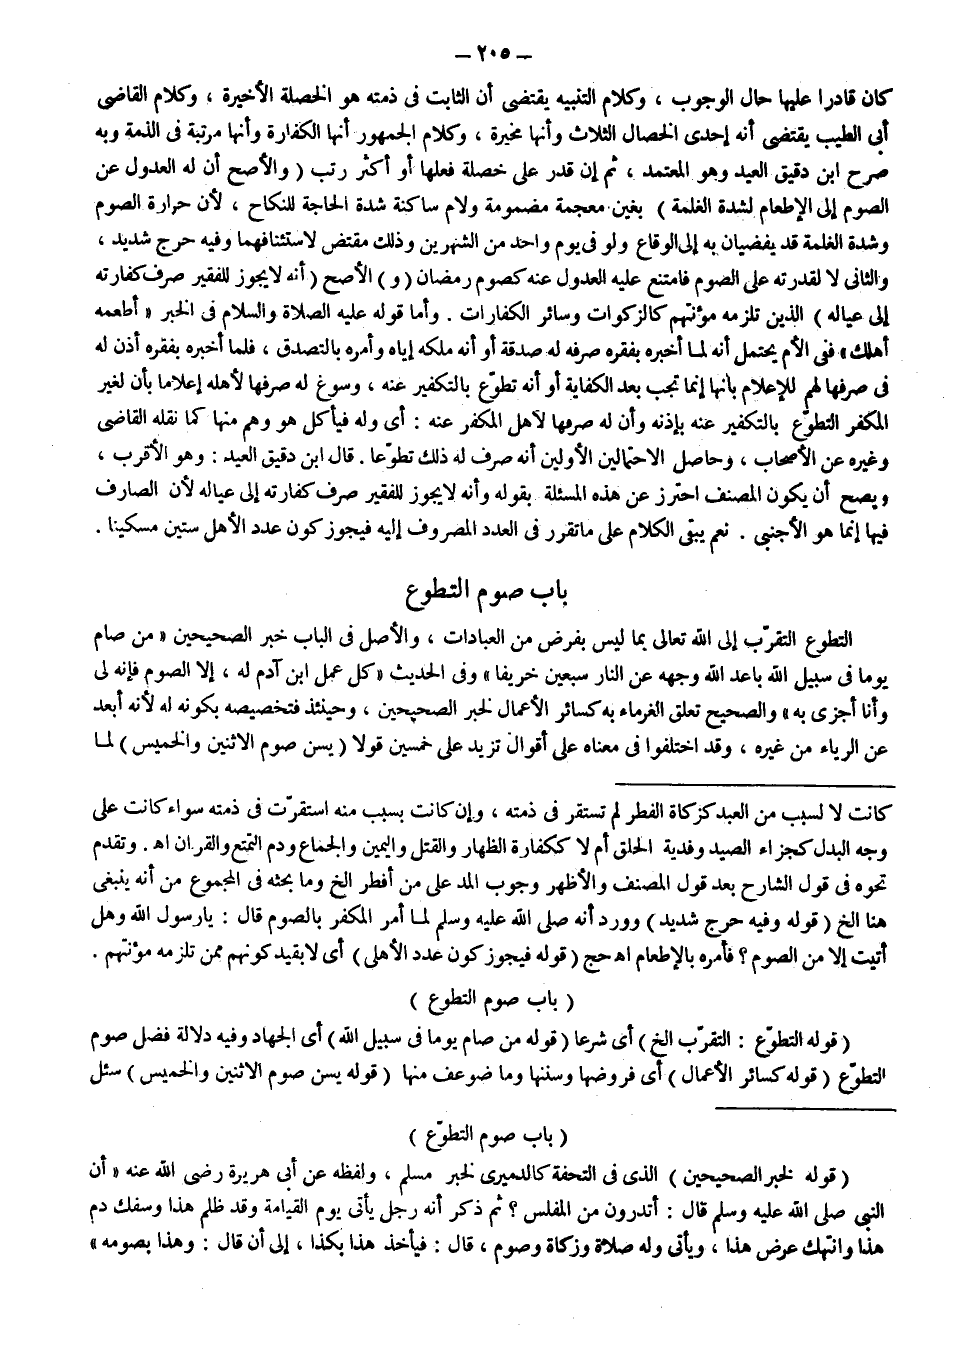 — ٢٠٥ —
كان قادرا عليها حال الوجوب ، وكلام التنبيه يقتضى أن الثابت فى ذمته هو الخصلة الأخيرة ، وكلام القاضى
أبى الطيب يقتضى أنه إحدى الخصال الثلاث وأنها مخيرة ، وكلام الجمهور أنها الكفارة وأنها مرتبة فى الذمة وبه
صرح ابن دقيق العيد وهو المعتمد ، ثم إن قدر على خصلة فعلها أو أكثر رتب ( والأصح أن له العدول عن
الصوم إلى الإطعام لشدة الغلمة ) بغين معجمة مضمومة ولام ساكنة شدة الحاجة للنكاح ، لأن حرارة الصوم
وشدة الغلمة قد يفضيان به إلى الوقاع ولو فى يوم واحد من الشهرين وذلك مقتض لاستئنافهما وفيه حرج شديد ،
والثانى لا لقدرته على الصوم فامتنع عليه العدول عنه كصوم رمضان ( و ) الأصح ( أنه لايجوز للفقير صرف كفارته
إلى عياله ) الذين تلزمه مؤنتهم كالزكوات وسائر الكفارات . وأما قوله عليه الصلاة والسلام فى الخبر « أطعمه
أهلك » ففى الأم يحتمل أنه لما أخبره بفقره صرفه له صدقة أو أنه ملكه إياه وأمره بالتصدق ، فلما أخبره بفقره أذن له
فى صرفها لهم للإعلام بأنها إنما تجب بعد الكفاية أو أنه تطوّع بالتكفير عنه ، وسوغ له صرفها لأهله إعلاما بأن لغير
المكفر التطوّع بالتكفير عنه بإذنه وأن له صرفها لأهل المكفر عنه : أى وله فيأكل هو وهم منها كما نقله القاضى
وغيره عن الأصحاب ، وحاصل الاحتمالين الأولين أنه صرف له ذلك تطوّعا . قال ابن دقيق العيد : وهو الأقرب ،
ويصح أن يكون المصنف احترز عن هذه المسئلة بقوله وأنه لايجوز للفقير صرف كفارته إلى عياله لأن الصارف
فيها إنما هو الأجنبى . نعم يبقى الكلام على ماتقرر فى العدد المصروف إليه فيجوز كون عدد الأهل ستين مسكينا .
باب صوم التطوع
التطوع التقرّب إلى الله تعالى بما ليس بفرض من العبادات ، والأصل فى الباب خبر الصحيحين « من صام
يوما فى سبيل الله باعد الله وجهه عن النار سبعين خريفا » وفى الحديث « كل عمل ابن آدم له ، إلا الصوم فإنه لى
وأنا أجزى به » والصحيح تعلق الغرماء به كسائر الأعمال لخبر الصحيحين ، وحينئذ فتخصيصه بكونه له لأنه أبعد
عن الرياء من غيره ، وقد اختلفوا فى معناه على أقوال تزيد على خمسين قولا ( يسن صوم الاثنين والخميس ) لما
كانت لا لسبب من العبد كزكاة الفطر لم تستقر فى ذمته ، وإن كانت بسبب منه استقرّت فى ذمته سواء كانت على
وجه البدل كجزاء الصيد وفدية الحلق أم لا ككفارة الظهار والقتل واليمين والجماع ودم التمتع والقران اه . وتقدم
نحوه فى قول الشارح بعد قول المصنف والأظهر وجوب المد على من أفطر الخ وما بحثه فى المجموع من أنه ينبغى
هنا الخ ( قوله وفيه حرج شديد ) وورد أنه صلى الله عليه وسلم لما أمر المكفر بالصوم قال : يارسول الله وهل
أتيت إلا من الصوم ؟ فأمره بالإطعام اه حج ( قوله فيجوز كون عدد الأهلى ) أى لابقيد كونهم ممن تلزمه مؤنتهم .
( باب صوم التطوع )
( قوله التطوّع : التقرّب الخ ) أى شرعا ( قوله من صام يوما فى سبيل الله ) أى الجهاد وفيه دلالة فضل صوم
التطوّع ( قوله كسائر الأعمال ) أى فروضها وسننها وما ضوعف منها ( قوله يسن صوم الاثنين والخميس ) سئل
( باب صوم التطوّع )
( قوله لخبر الصحيحين ) الذى فى التحفة كالدميرى لخبر مسلم ، ولفظه عن أبى هريرة رضى الله عنه « أن
النبى صلى الله عليه وسلم قال : أتدرون من المفلس ؟ ثم ذكر أنه رجل يأتى يوم القيامة وقد ظلم هذا وسفك دم
هذا وانتهك عرض هذا ، ويأتى وله صلاة وزكاة وصوم ، قال : فيأخذ هذا بكذا ، إلى أن قال : وهذا بصومه »